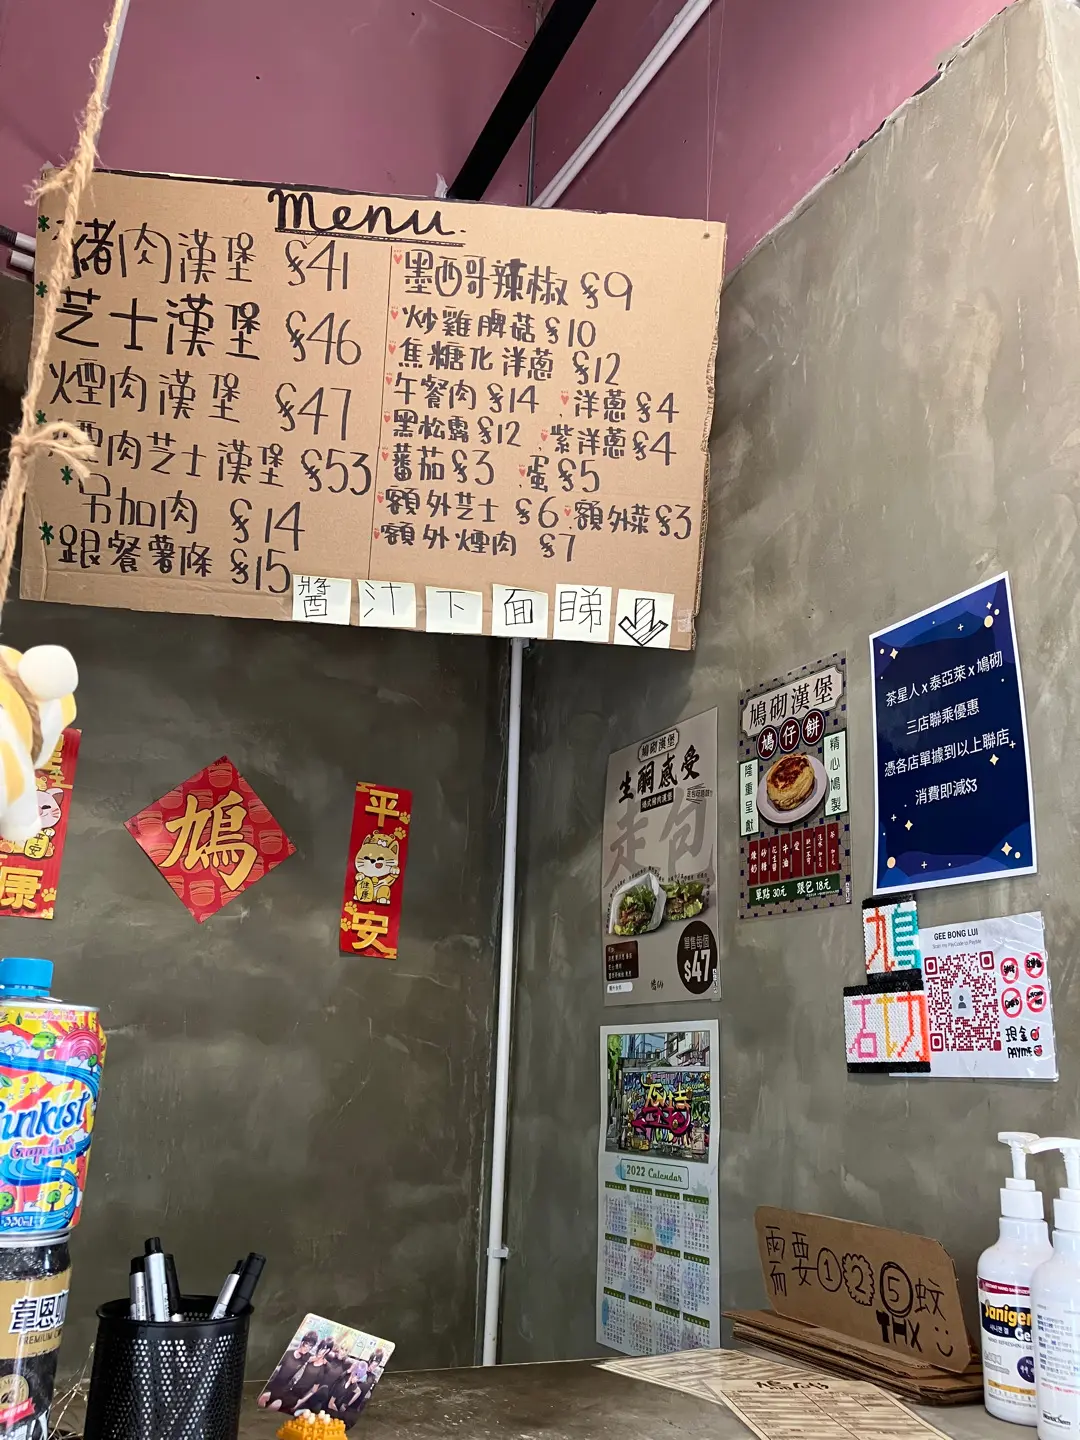 Menu.
豬肉漢堡 $41
芝士漢堡 $46
煙肉漢堡 $47
煙肉芝士漢堡 $53
另加肉 $14
跟餐薯條 $15
墨西哥辣椒 $9
炒雞脾菇 $10
焦糖化洋蔥 $12
午餐肉 $14 洋蔥 $4
黑松露 $12 紫洋蔥 $4
蕃茄 $3 蛋 $5
額外芝士 $6 額外菜 $3
額外煙肉 $7
醬汁下面睇
康
鳩
平
健康
安
鳩砌漢堡
生酮感受
走包
單售每個
$47
鳩砌漢堡
鳩仔餅
隆重呈獻
精心鳩製
單點 30元 跟包 18元
茶星人 x 泰亞萊 x 鳩砌
三店聯乘優惠
憑各店單據到以上聯店
消費即減$3
鳩
砌
GEE BONG LUI
Scan my PayCode to PayMe
現金
PAYME
2022 Calendar
需要①②⑤蚊
THX
Sunkist
Grapefruit
韋恩咖
PREMIUM
Sanigen
Gel